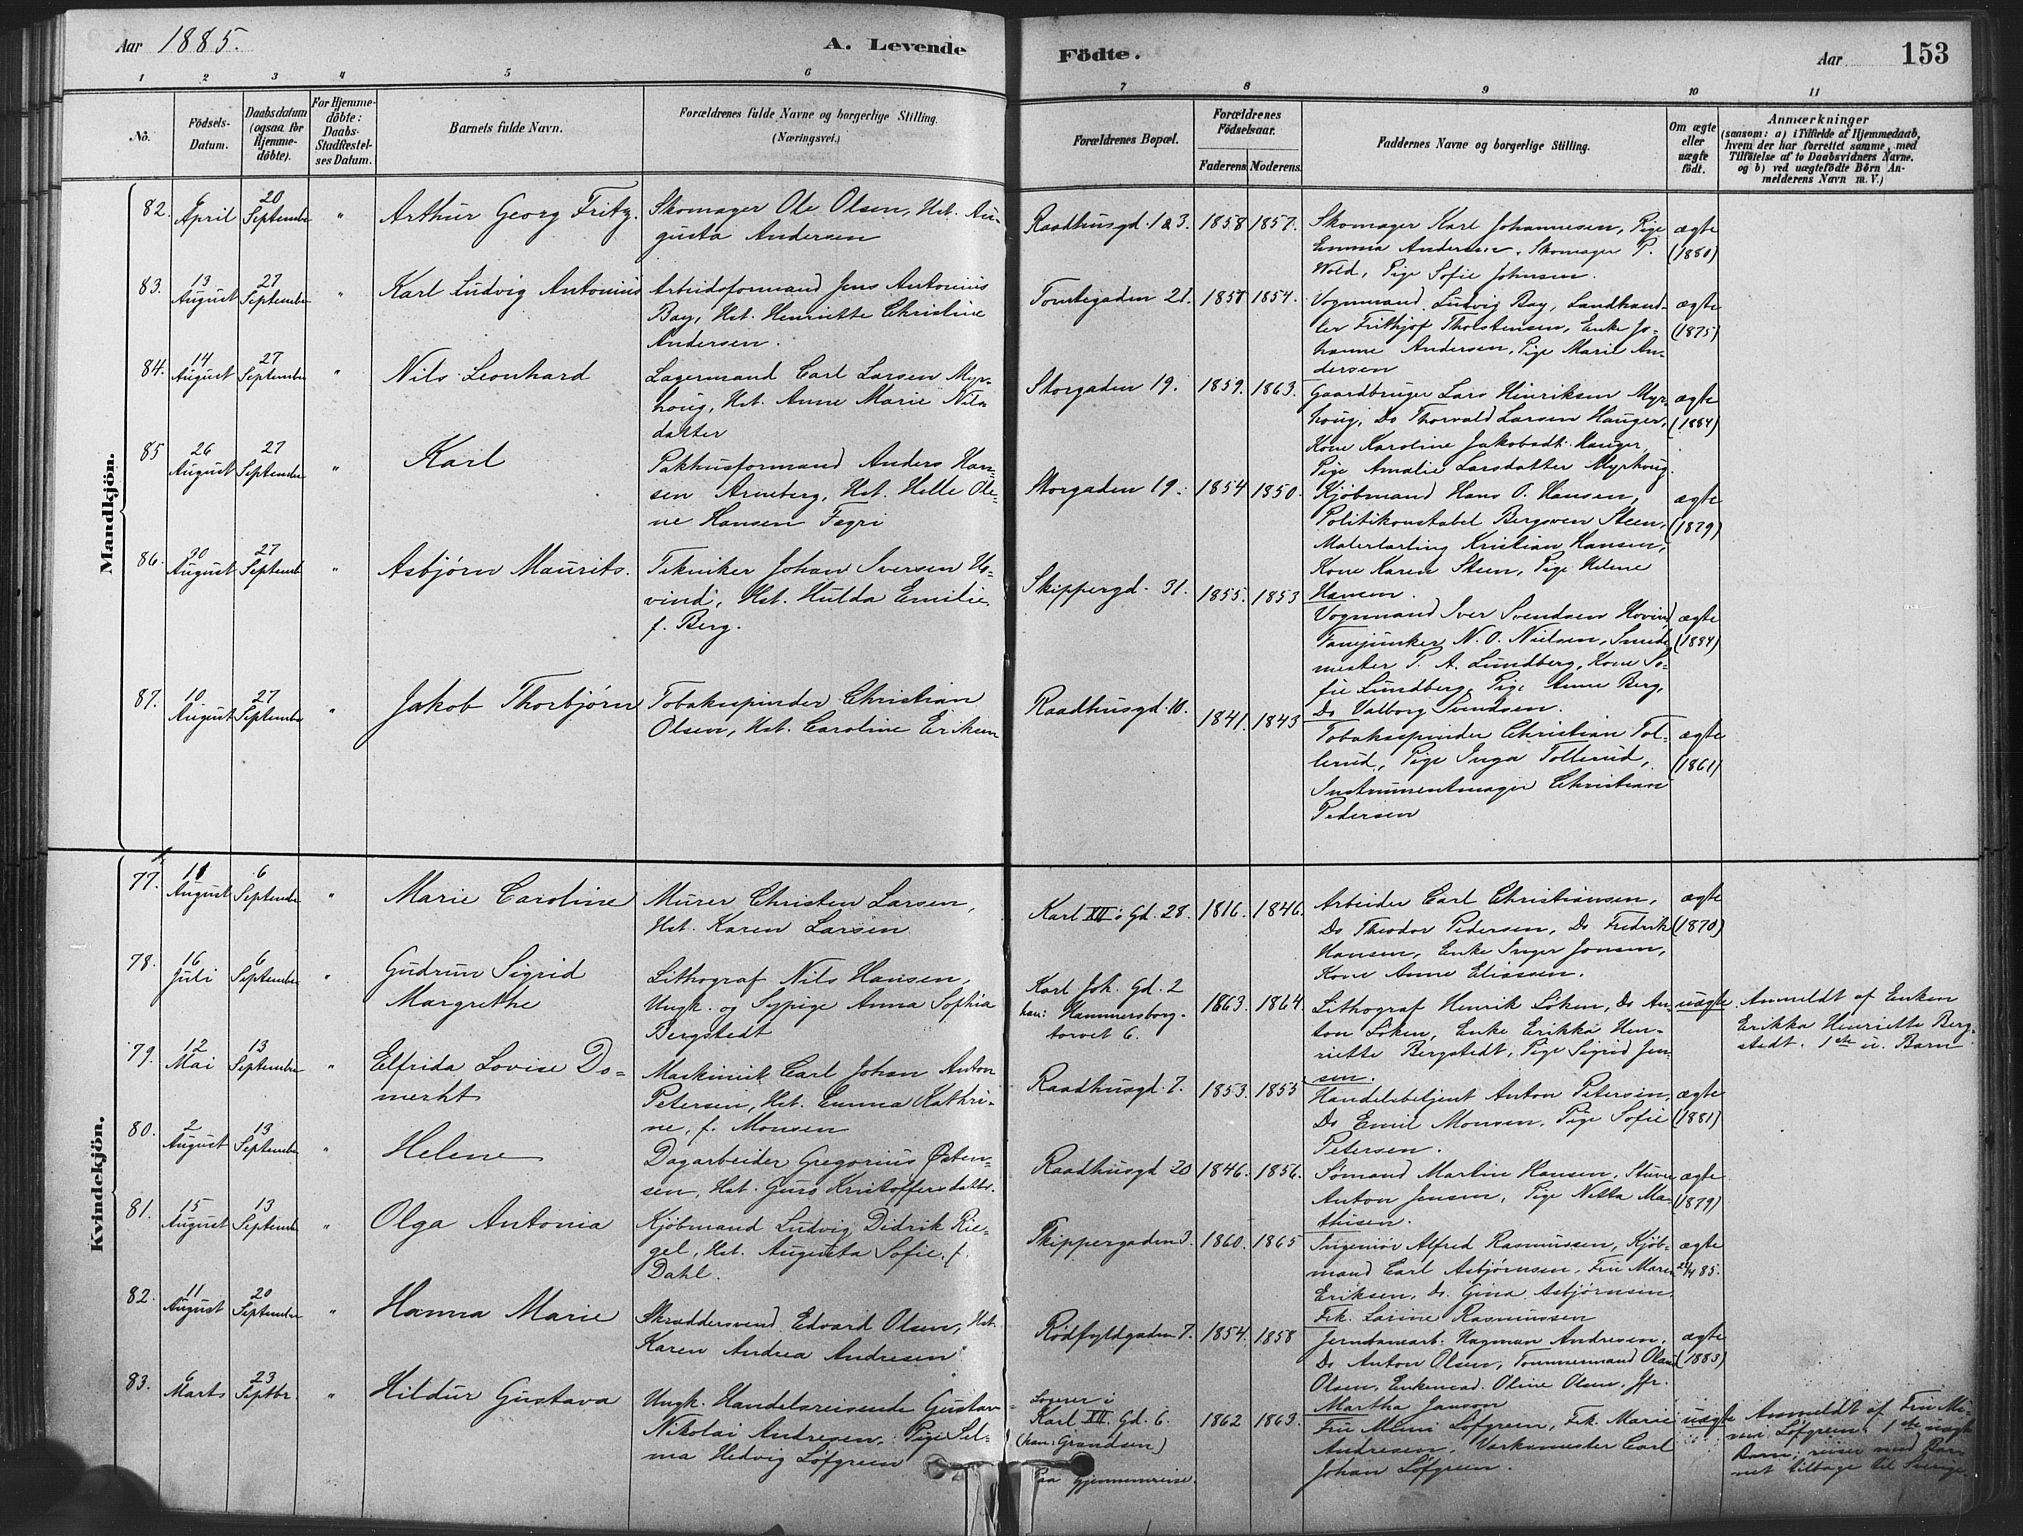 Aar 1885. A. Levende Födte. Aar 153
1 2 3 4 5 6 7 8 9 10 11
No.
Födsels-Datum.
Daabsdatum (ogsaa for Hjemme-döbte).
For Hjemme-döbte: Daabs-Stadfestel-ses Datum.
Barnets fulde Navn.
Forældrenes fulde Navne og borgerlige Stilling. (Næringsvei.)
Forældrenes Bopæl.
Forældrenes Födselsaar.
Faderens. Moderens.
Faddernes Navne og borgerlige Stilling.
Om ægte eller uægte födt.
Anmærkninger
(saasom: a) i Tilfælde af Hjemmedaab,
hvem der har forrettet samme, med
Tilföielse af to Daabsvidners Navne.
og b) ved uægtefödte Börn An-
melderens Navn m. V.)
Mandkjön.
82. April 20 September " Arthur Georg Fritz. Skomager Ole Olsen, Hst. Au-
gusta Andersen
Raadhusgd. 1 & 3. 1858 1857. Skomager Karl Johannesen, Pige ægte
Emma Andersen, Skomager P. (1880)
Wold, Pige Sofie Johnsen.
83. 13 August 27 September " Karl Ludvig Antonius Arbeidsformand Jens Antonius
Bay, Hst. Henriette Christine
Andersen.
Tomtegaden 21. 1854. Vognmand Ludvig Bay, Landhand- ægte
ler Frithjof Tholstensen, Enke Jo- (1875)
hanne Andersen, Pige Marie An-
dersen
84. 14 August 27 September " Nils Leonhard Lagermand Carl Larsen Myr-
houg, Hst. Anne Marie Nils-
datter
Storgaden 19. 1859. 1863. Gaardbruger Lars Henriksen Myr- ægte
houg, Do Thorvald Larsen Hauger, (1884)
Kone Karoline Jakobsdt. Hauger,
Pige Amalie Larsdatter Myrhoug.
85 26 August 27 September " Karl Pakhusformand Anders Han-
sen Arneberg, Hst. Helle Ole-
ne Hansen Fegri
Storgaden 19. 1854 1850. Kjöbmand Hans O. Hansen, ægte
Politikonstabel Bergsven Steen, (1879)
Malerlærling Kristian Hansen,
Kone Karen Steen, Pige Helene
Hansen.
86. 20 August 27 September " Asbjørn Maurits. Tekniker Johan Iversen Ho-
vind, Hst. Hulda Emilie
f. Berg.
Skippergd. 31. 1855. 1853 Vognmand Iver Svendsen Hovind, ægte
Fanejunker N. O. Nielsen, Smede- (1884)
mester P. A. Lundberg, Kone So-
fie Lundberg, Pige Anne Berg,
Do Valborg Svendsen.
87. 10 August 27 September " Jakob Thorbjørn Tobaksspinder Christian
Olsen, Hst. Caroline Eriksen
Raadhusgd. 10. 1841. 1843 Tobaksspinder Christian Tol- ægte
lerud, Pige Inga Tollerud, (1861)
Instrumentmager Christian
Pedersen
Kvindekjön.
77. 11 August 6 September " Marie Caroline Murer Christen Larsen,
Hst. Karen Larsen
Karl XII s Gd. 28. 1816. 1846. Arbeider Carl Christiansen, ægte
Do Theodor Pedersen, Do Fredrik (1870)
Hansen, Enke Inger Jonsen,
Kone Anne Eliassen.
78. 16 Juli 6 September " Gudrun Sigrid
Margrethe
Lithograf Nils Hansen,
Ungk. og Sypige Anna Sophia
Bergstedt
Karl Joh. Gd. 2
han: Hammersborg-
torvet 6.
1863. 1864. Lithograf Henrik Löken, Do An- uægte
ton Löken, Enke Erikka Hen-
riette Bergstedt, Pige Sigrid Jen-
sen.
Anmeldt af Enken
Erikka Henriette Berg-
stedt. 1ste u. Barn
79. 12 Mai 13 September " Elfrida Lovise Do-
merkt
Maskinist Carl Johan Anton
Petersen, Hst. Emma Kathri-
ne, f. Monsen
Raadhusgd. 7. 1853. 1855 Handelsbetjent Anton Petersen, ægte
Do Emil Monsen, Pige Sofie (1881)
Petersen.
80. 2 August 13 September " Helene Dagarbeider Gregorius Østen-
sen, Hst. Guro Kristoffersdatt.
Raadhusgd 20 1846. 1856. Sömand Martin Hansen, Stuver ægte
Anton Jensen, Pige Netta Ma- (1879)
thisen.
81. 15 August 13 September " Olga Antonia Kjöbmand Ludvig Didrik Rie-
gel, Hst. Augusta Sofie, f.
Dahl.
Skippergaden 3. 1860. 1865 Ingeniör Alfred Rasmussen, Kjöb- ægte
mand Carl Asbjørnsen, Fru Maren 85.
Eriksen, Do. Gina Asbjørnsen,
Frk. Larine Rasmussen
82. 11 August 20 September " Hanna Marie Skræddersvend Edvard Olsen, Hst.
Karen Andrea Andresen
Rödfyldgaden 7. 1854. 1858 Jerndamarb. Hagman Andresen, ægte
Do Anton Olsen, Tommermand Olaus (1883)
Olsen, Enkemad. Oline Olsen, Jfr.
Martha Janson
83. 6 Marts 23 Septbr. " Hildur Gustava Ungk. Handelsreisende Gustav
Nikolai Andresen, Pige Sel-
ma Hedvig Löfgreen
Logerer i
Karl XII. Gd. 6.
(han: Grandsen)
Paa Gjennemreise.
1862 1863. Fru Mimi Löfgreen, Frk. Marie uægte
Andresen, Varksmester Carl
Johan Löfgreen.
Anmeldt af Fru Mi-
mi Löfgreen. 1ste uægte
Barn, reiser med Bar-
net tilbage til Sverige.